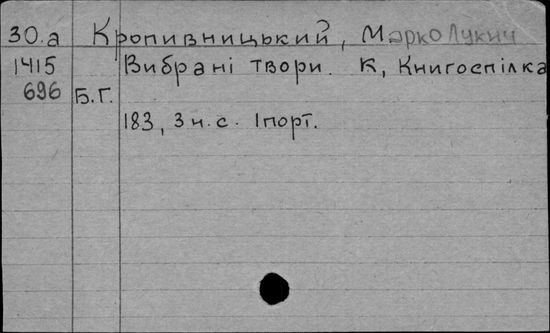 30.а Кропивницький, Марко Лукич
1415 Вибрані твори. К, Книгоспілка
696 Б.Г.
183, 3 н.с. 1 порт.